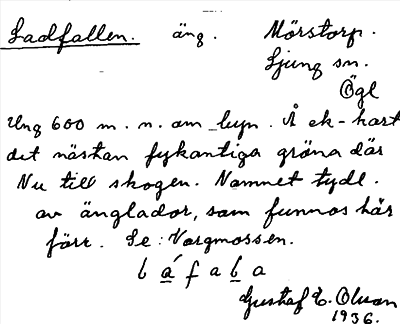 Ladfallen. äng. Mörstorp.
Ljung sn.
Ögl
Ung 600 m. n. om byn. Å ek-kart
det nästan fykantiga gröna där
Nu till skogen. Namnet tydl.
av änglador, som funnos här
förr. Se: Vargmossen.
l á f a l a
Gustaf E. Olson
1936.